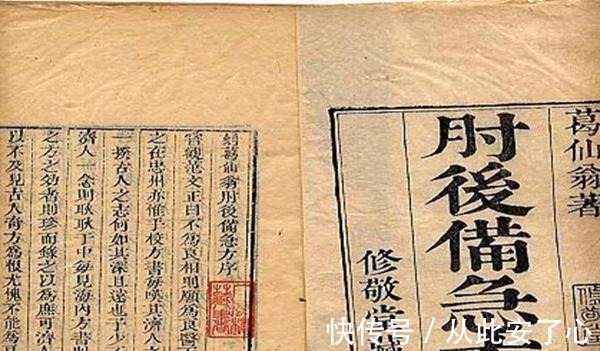 葛仙翁著
肘後備急
修敬堂藏
葛仙翁肘後備急方序
嘗觀范文正曰不爲良相則願爲良醫
之在忠州亦惟手校方書每嘆其濟人
一揆古人之志何如其深且遠也予少
濟人一念則耿耿于中每見海内方書
之方之効者則珍而錄之以爲庶可濟人
以不及見古人奇方爲恨尤愧不能爲
快传号 / 从此安了心